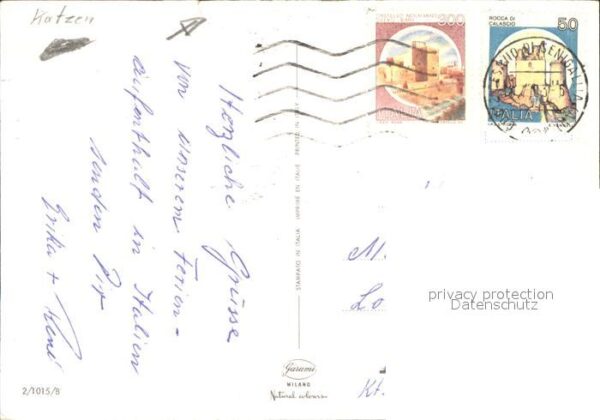 Katzen
Herzliche Grüsse
von unserem Ferien-
aufenthalt in Italien
senden Dir
Erika + René
STAMPATO IN ITALIA IMPRIMÉ EN ITALIE PRINTED IN ITALY
300
ITALIA
50
ROCCA DI
CALASCIO
ITALIA
M.
Lo
Kt.
privacy protection
Datenschutz
Garami
MILANO
Natural colour
2/1015/8